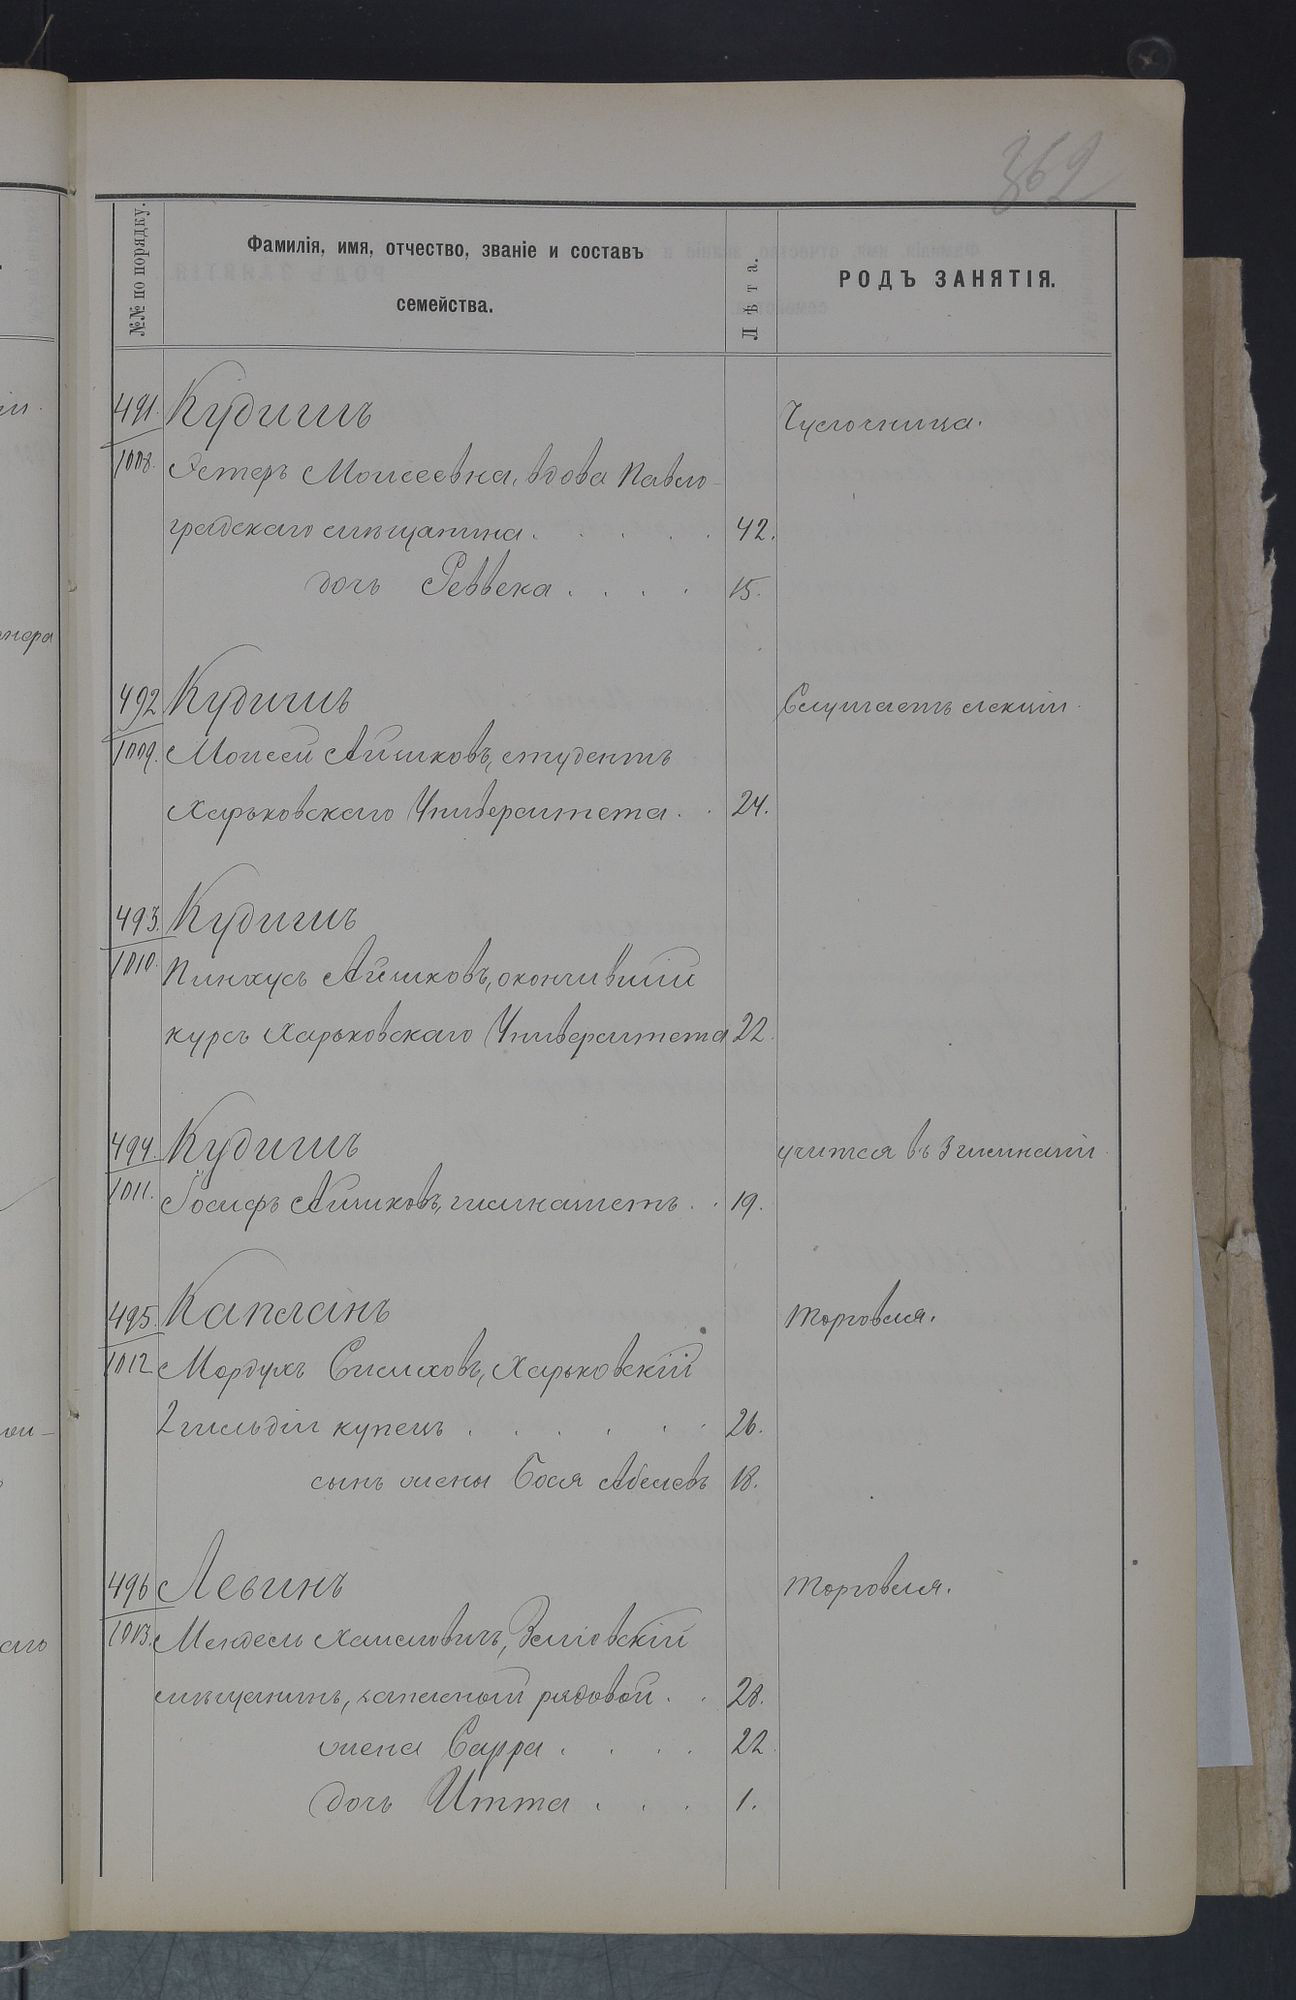 362
№№ по порядку.
Фамилія, имя, отчество, званіе и составъ
семейства.
Лѣта.
РОДЪ ЗАНЯТІЯ.
491. Кудишъ
Чулочница.
1008. Эстеръ Моисеевна, вдова Павло-
градскаго мѣщанина . . . . . 42.
дочь Реввека . . . . 15.
492 Кудишъ
Слушаетъ лекціи.
1009. Моисей Айзиковъ, студентъ
Харьковскаго Университета . . 24.
493. Кудишъ
1010. Пинхусъ Айзиковъ, окончившій
курсъ Харьковскаго Университета 22.
494. Кудишъ
учится въ 3 гимназіи.
1011. Іосифъ Айзиковъ, гимназистъ . . 19.
495. Капланъ
Торговля.
1012 Мордухъ Симховъ, Харьковскій
2 гильдіи купецъ . . . . . 26.
сынъ жены Абелевъ 18.
496 Левинъ
Торговля.
1013. Мендель Хаимовичъ,
мѣщанинъ, запасный рядовой . . 28.
жена Сарра . . . . 22.
дочь Итта . . . 1.
нера